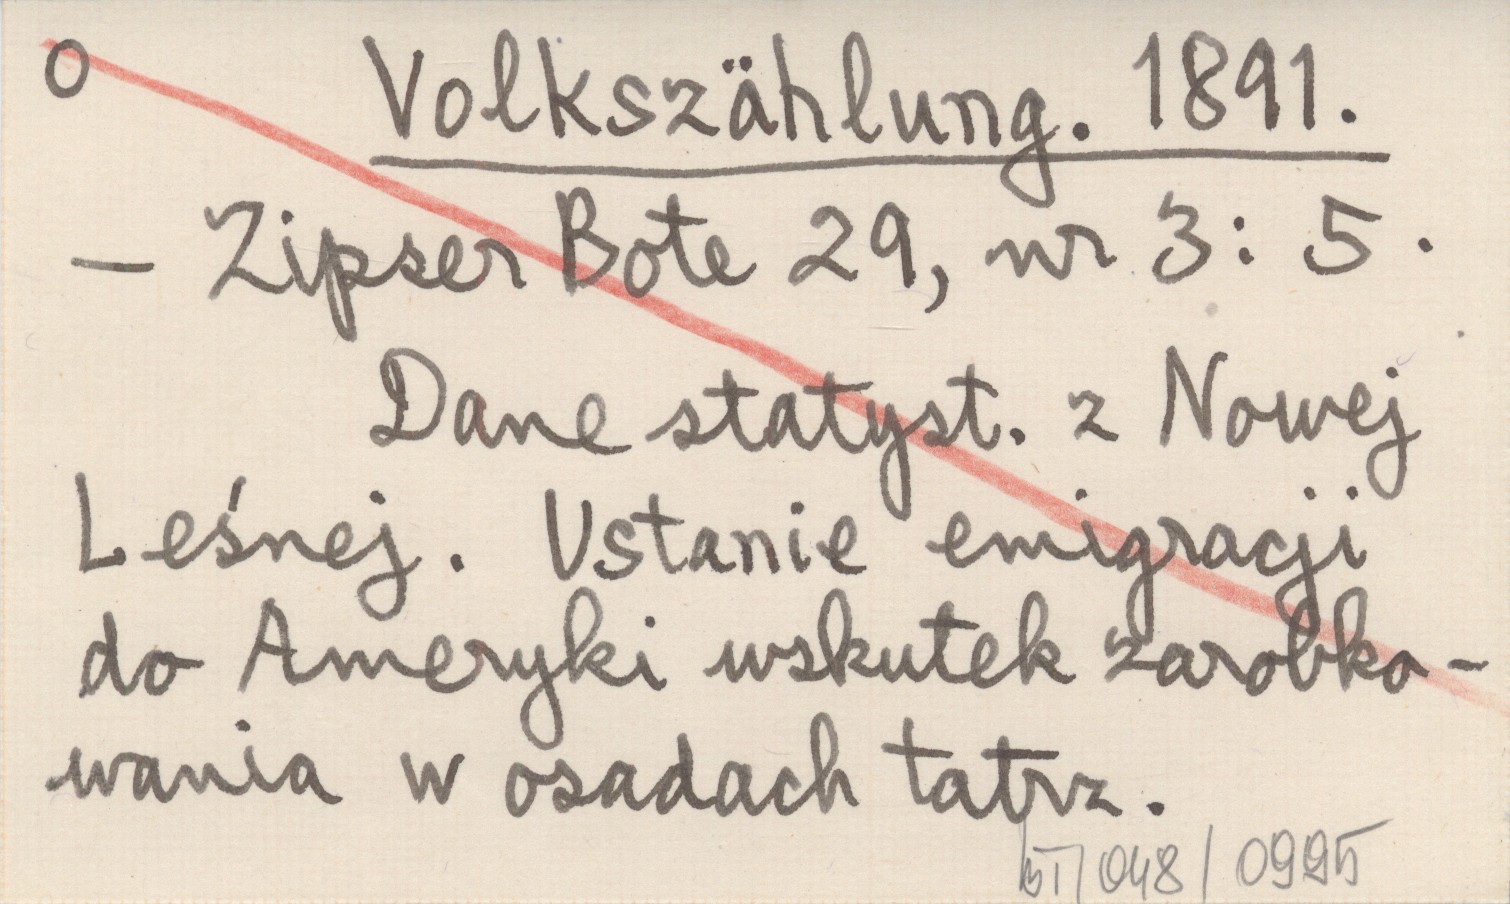 O Volkszählung. 1891.
— Zipser Bote 29, nr 3: 5.
Dane statyst. z Nowej
Leśnej. Ustanie emigracji
do Ameryki wskutek zarobko-
wania w osadach tatrz.
BT/048/0995